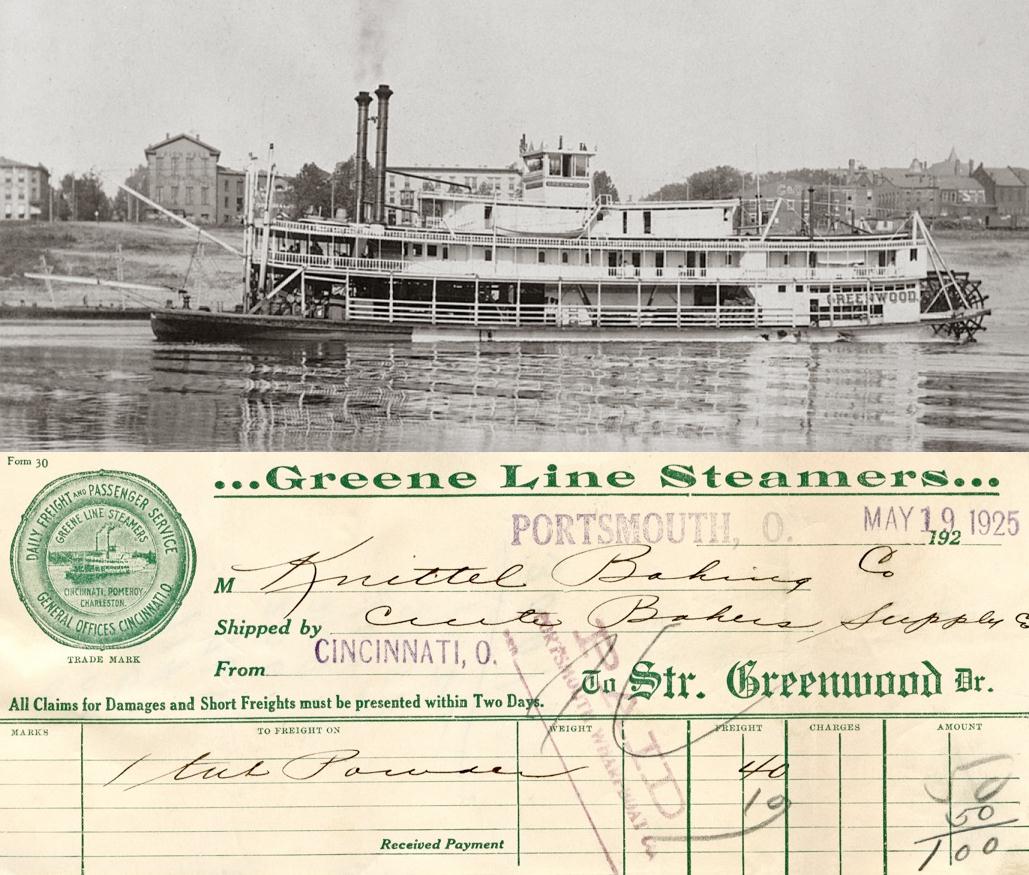 GREENWOOD
GREENWOOD
Form 30
...Greene Line Steamers...
DAILY FREIGHT AND PASSENGER SERVICE
GREENE LINE STEAMERS
CINCINNATI, POMEROY
CHARLESTON.
GENERAL OFFICES CINCINNATI.O
TRADE MARK
PORTSMOUTH, O. MAY 19 1925
192
M Knittel Baking Co
Shipped by Bakers Supply
From CINCINNATI, O.
To Str. Greenwood Dr.
All Claims for Damages and Short Freights must be presented within Two Days.
PAID
PORTSMOUTH
MARKS TO FREIGHT ON WEIGHT FREIGHT CHARGES AMOUNT
1 tub Powder 40 50
10 50
Received Payment 1 00